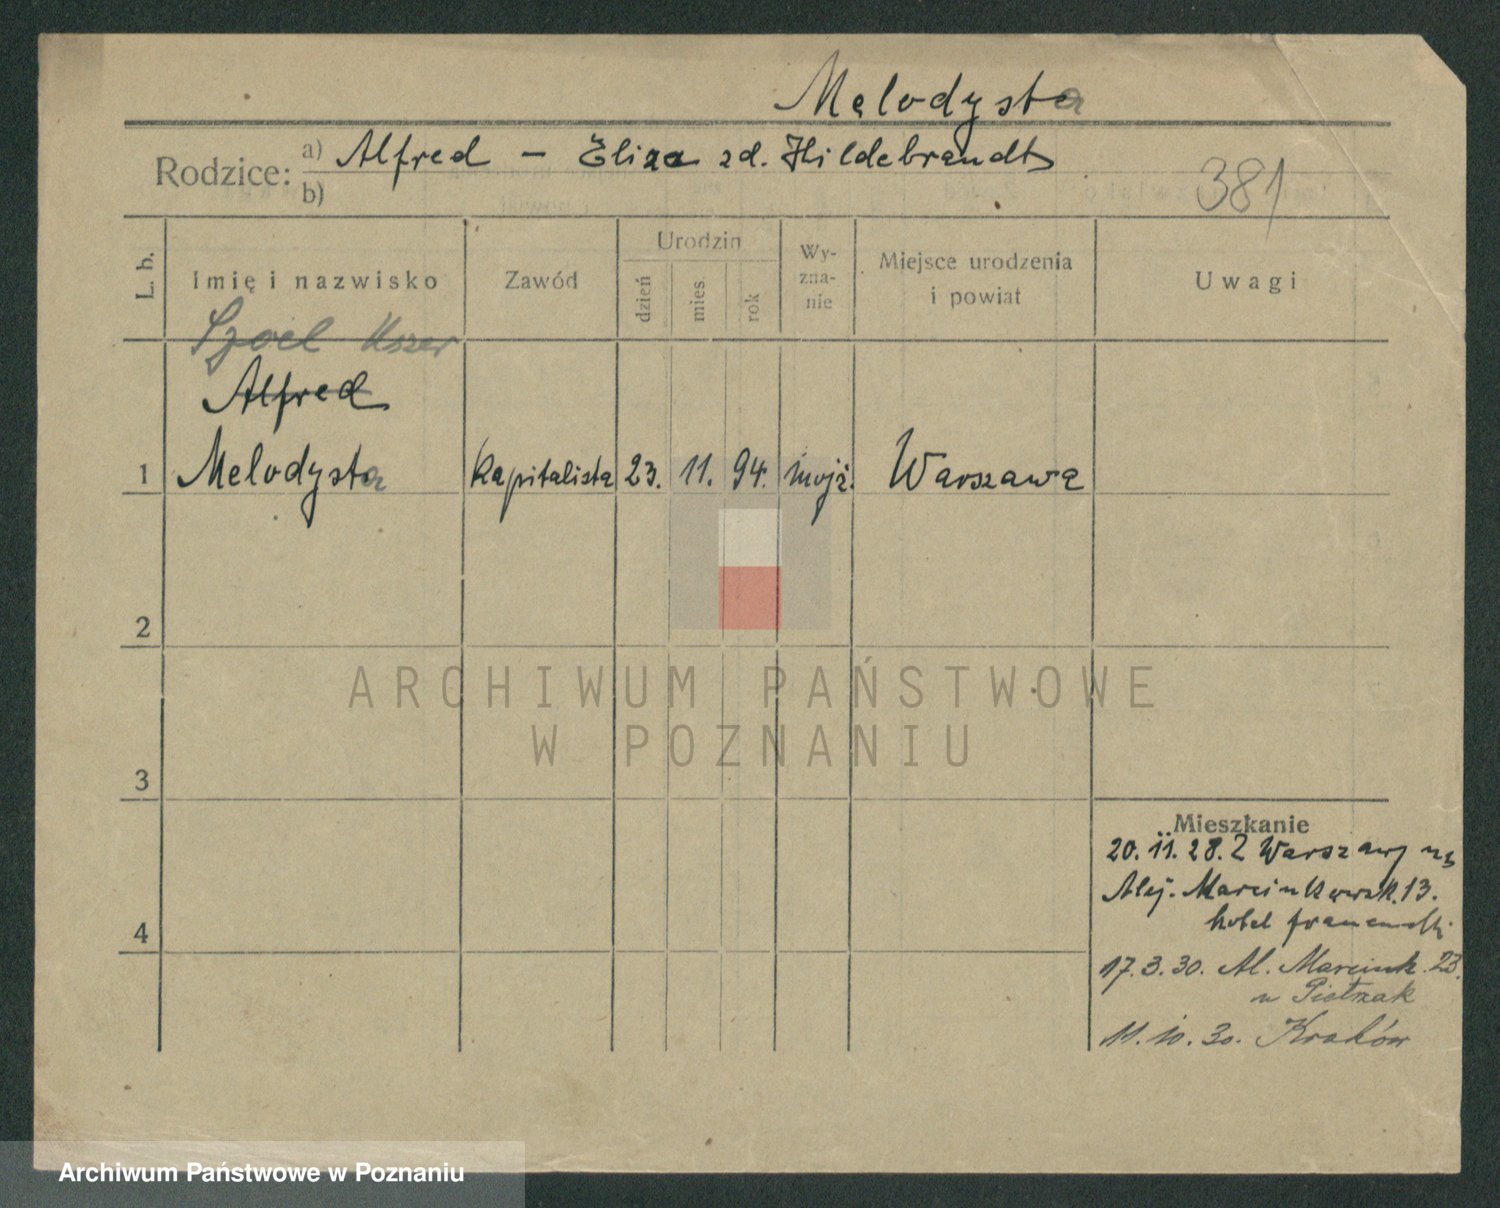 Melodysta
Rodzice: a) Alfred – Eliza zd. Hildebrandt
b)
381
L. b.
Imię i nazwisko
Zawód
Urodzin
dzień
mies
rok
Wy-
zna-
nie
Miejsce urodzenia
i powiat
Uwagi
Szoel Uszer
Alfred
1 Melodysta Kapitalista 23. 11. 94. mojż. Warszawa
2
3
4
ARCHIWUM PAŃSTWOWE
W POZNANIU
Mieszkanie
20. 11. 28. Z Warszawy
Alej. Marcinkowsk. 13.
hotel francuski
17. 3. 30. Al. Marcink. 23.
u Pietrzak
11. 10. 30. Kraków
Archiwum Państwowe w Poznaniu